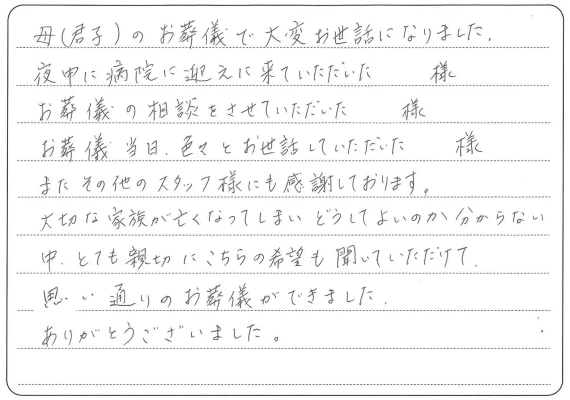 母(君子)のお葬儀で大変お世話になりました.
夜中に病院に迎えに来ていただいた　　様
お葬儀の相談をさせていただいた　　様
お葬儀当日.色々とお世話していただいた　　様
またその他のスタッフ様にも感謝しております。
大切な家族が亡くなってしまいどうしてよいのか分からない
中.とても親切にこちらの希望も聞いていただけて.
思い通りのお葬儀ができました.
ありがとうございました。